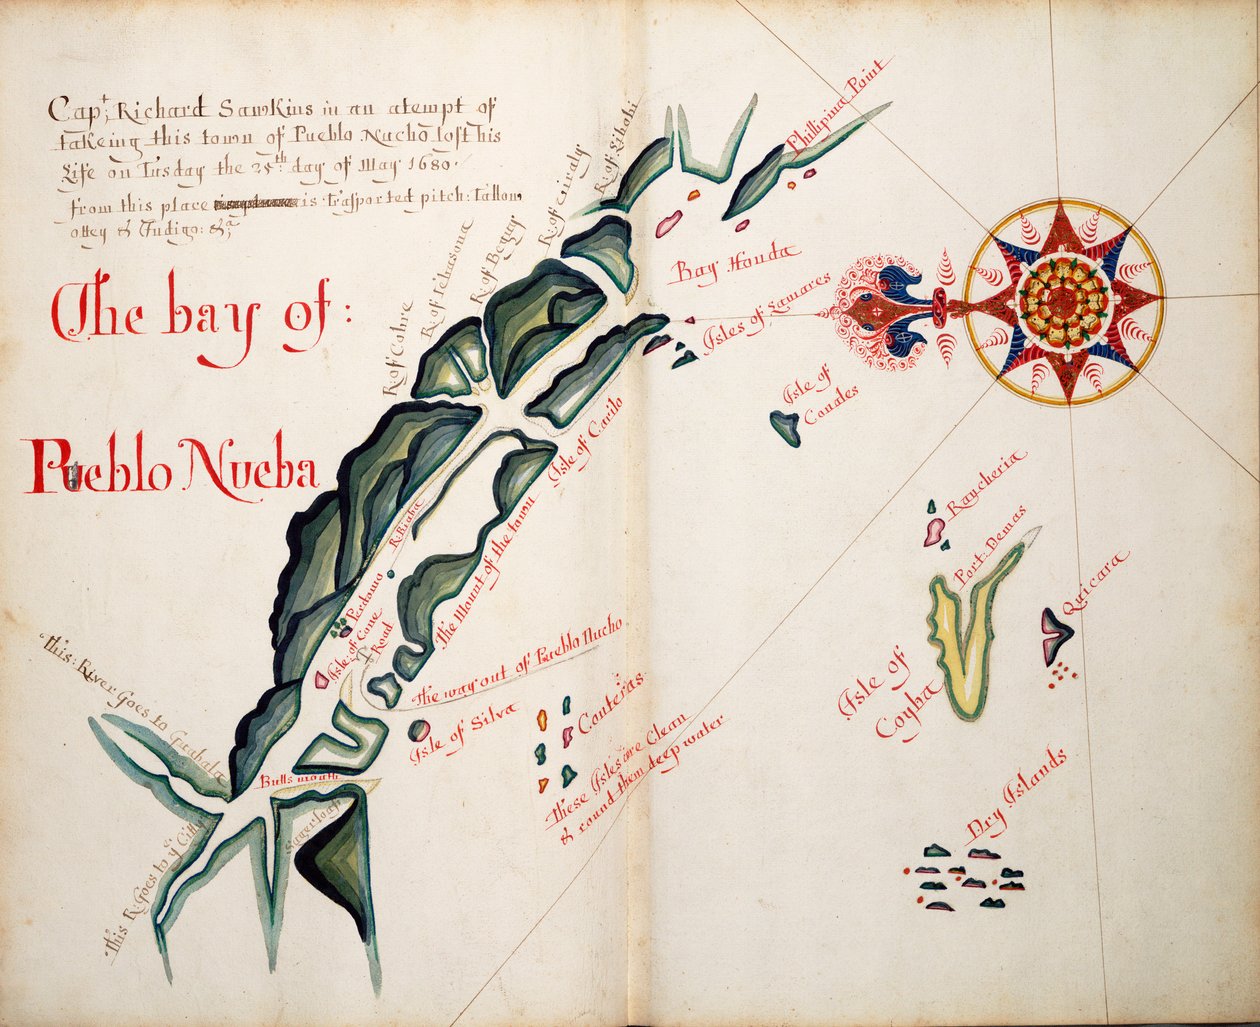 Capt: Richard Sawkins in an atempt of
takeing this town of Pueblo Nucho lost his
Life on Tusday the 25th day of May 1680
from this place is trasported pitch: Tallow,
ottey & Indigo: &a
The bay of:
Pueblo Nueba
R. of Cobre
R. of Tebasona
R. of Beguy
R. of Tiraly
Phillipina Point
Bay Honda
Isles of Lamares
Isle of
Conales
Isle of Carilo
R. Riaba
The Mount of the town
Perdomo
Isle of Cone
Road
The way out of Pueblo Nucho
Isle of Silva
Conteras
These Isles are Clean
& round them deep water
Raycheria
Port Demas
Quicara
Isle of
Coyba
Dry Islands
this: River Goes to
Bulls mouth
Sugerloaf
this R. Goes to ye Citty